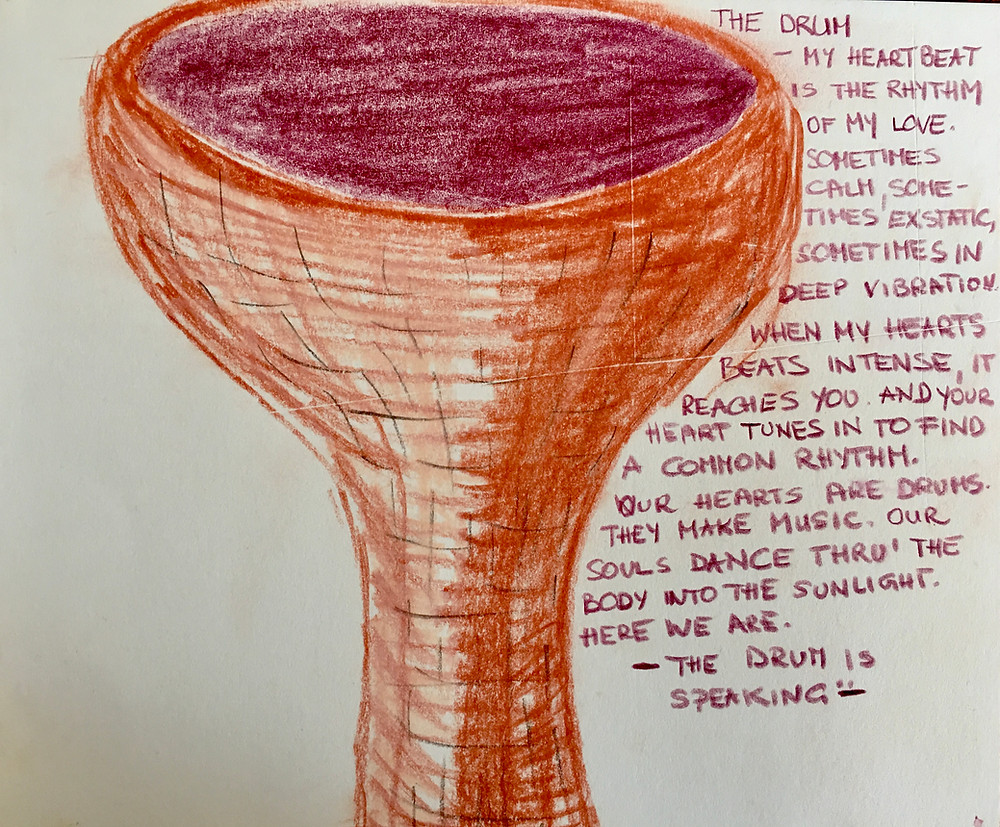 THE DRUM
- MY HEARTBEAT
IS THE RHYTHM
OF MY LOVE.
SOMETIMES
CALM, SOME-
TIMES EXSTATIC,
SOMETIMES IN
DEEP VIBRATION.
WHEN MY HEARTS
BEATS INTENSE, IT
REACHES YOU. AND YOUR
HEART TUNES IN TO FIND
A COMMON RHYTHM.
OUR HEARTS ARE DRUMS.
THEY MAKE MUSIC. OUR
SOULS DANCE THRU' THE
BODY INTO THE SUNLIGHT.
HERE WE ARE.
- THE DRUM IS
SPEAKING -